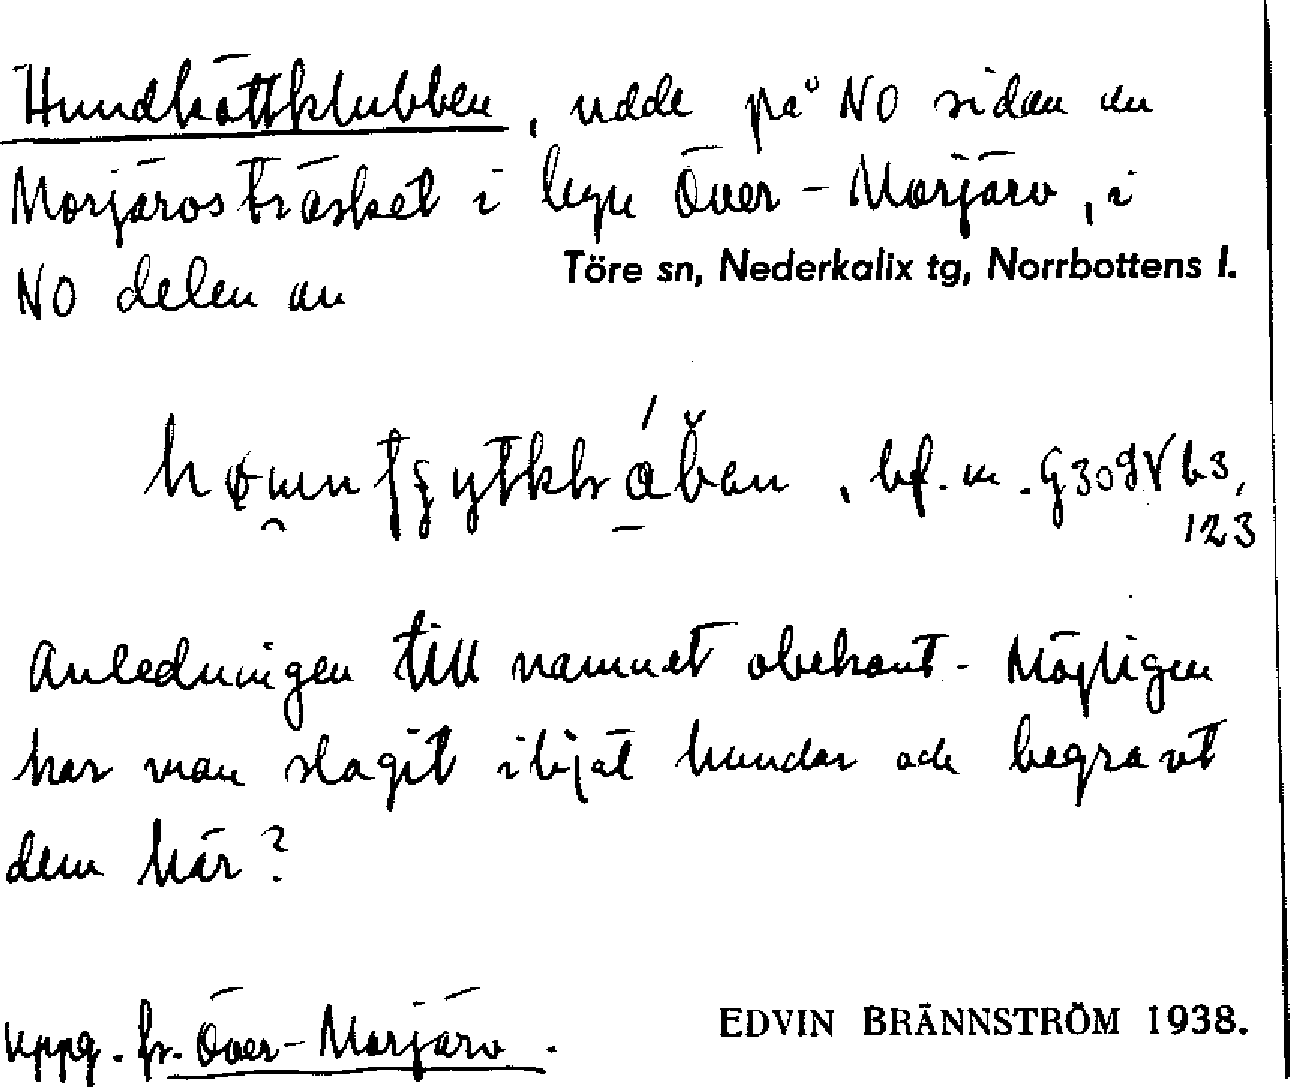 Hundköttklubben, udde på NO sidan av
Morjärvsträsket i byn Över-Morjärv, i
NO delen av Töre sn, Nederkalix tg, Norrbottens l.
bf. m.
123
Anledningen till namnet obekant. Möjligen
har man slagit ihjäl hundar och begravt
dem här?
Uppg. fr. Över-Morjärv.
EDVIN BRÄNNSTRÖM 1938.